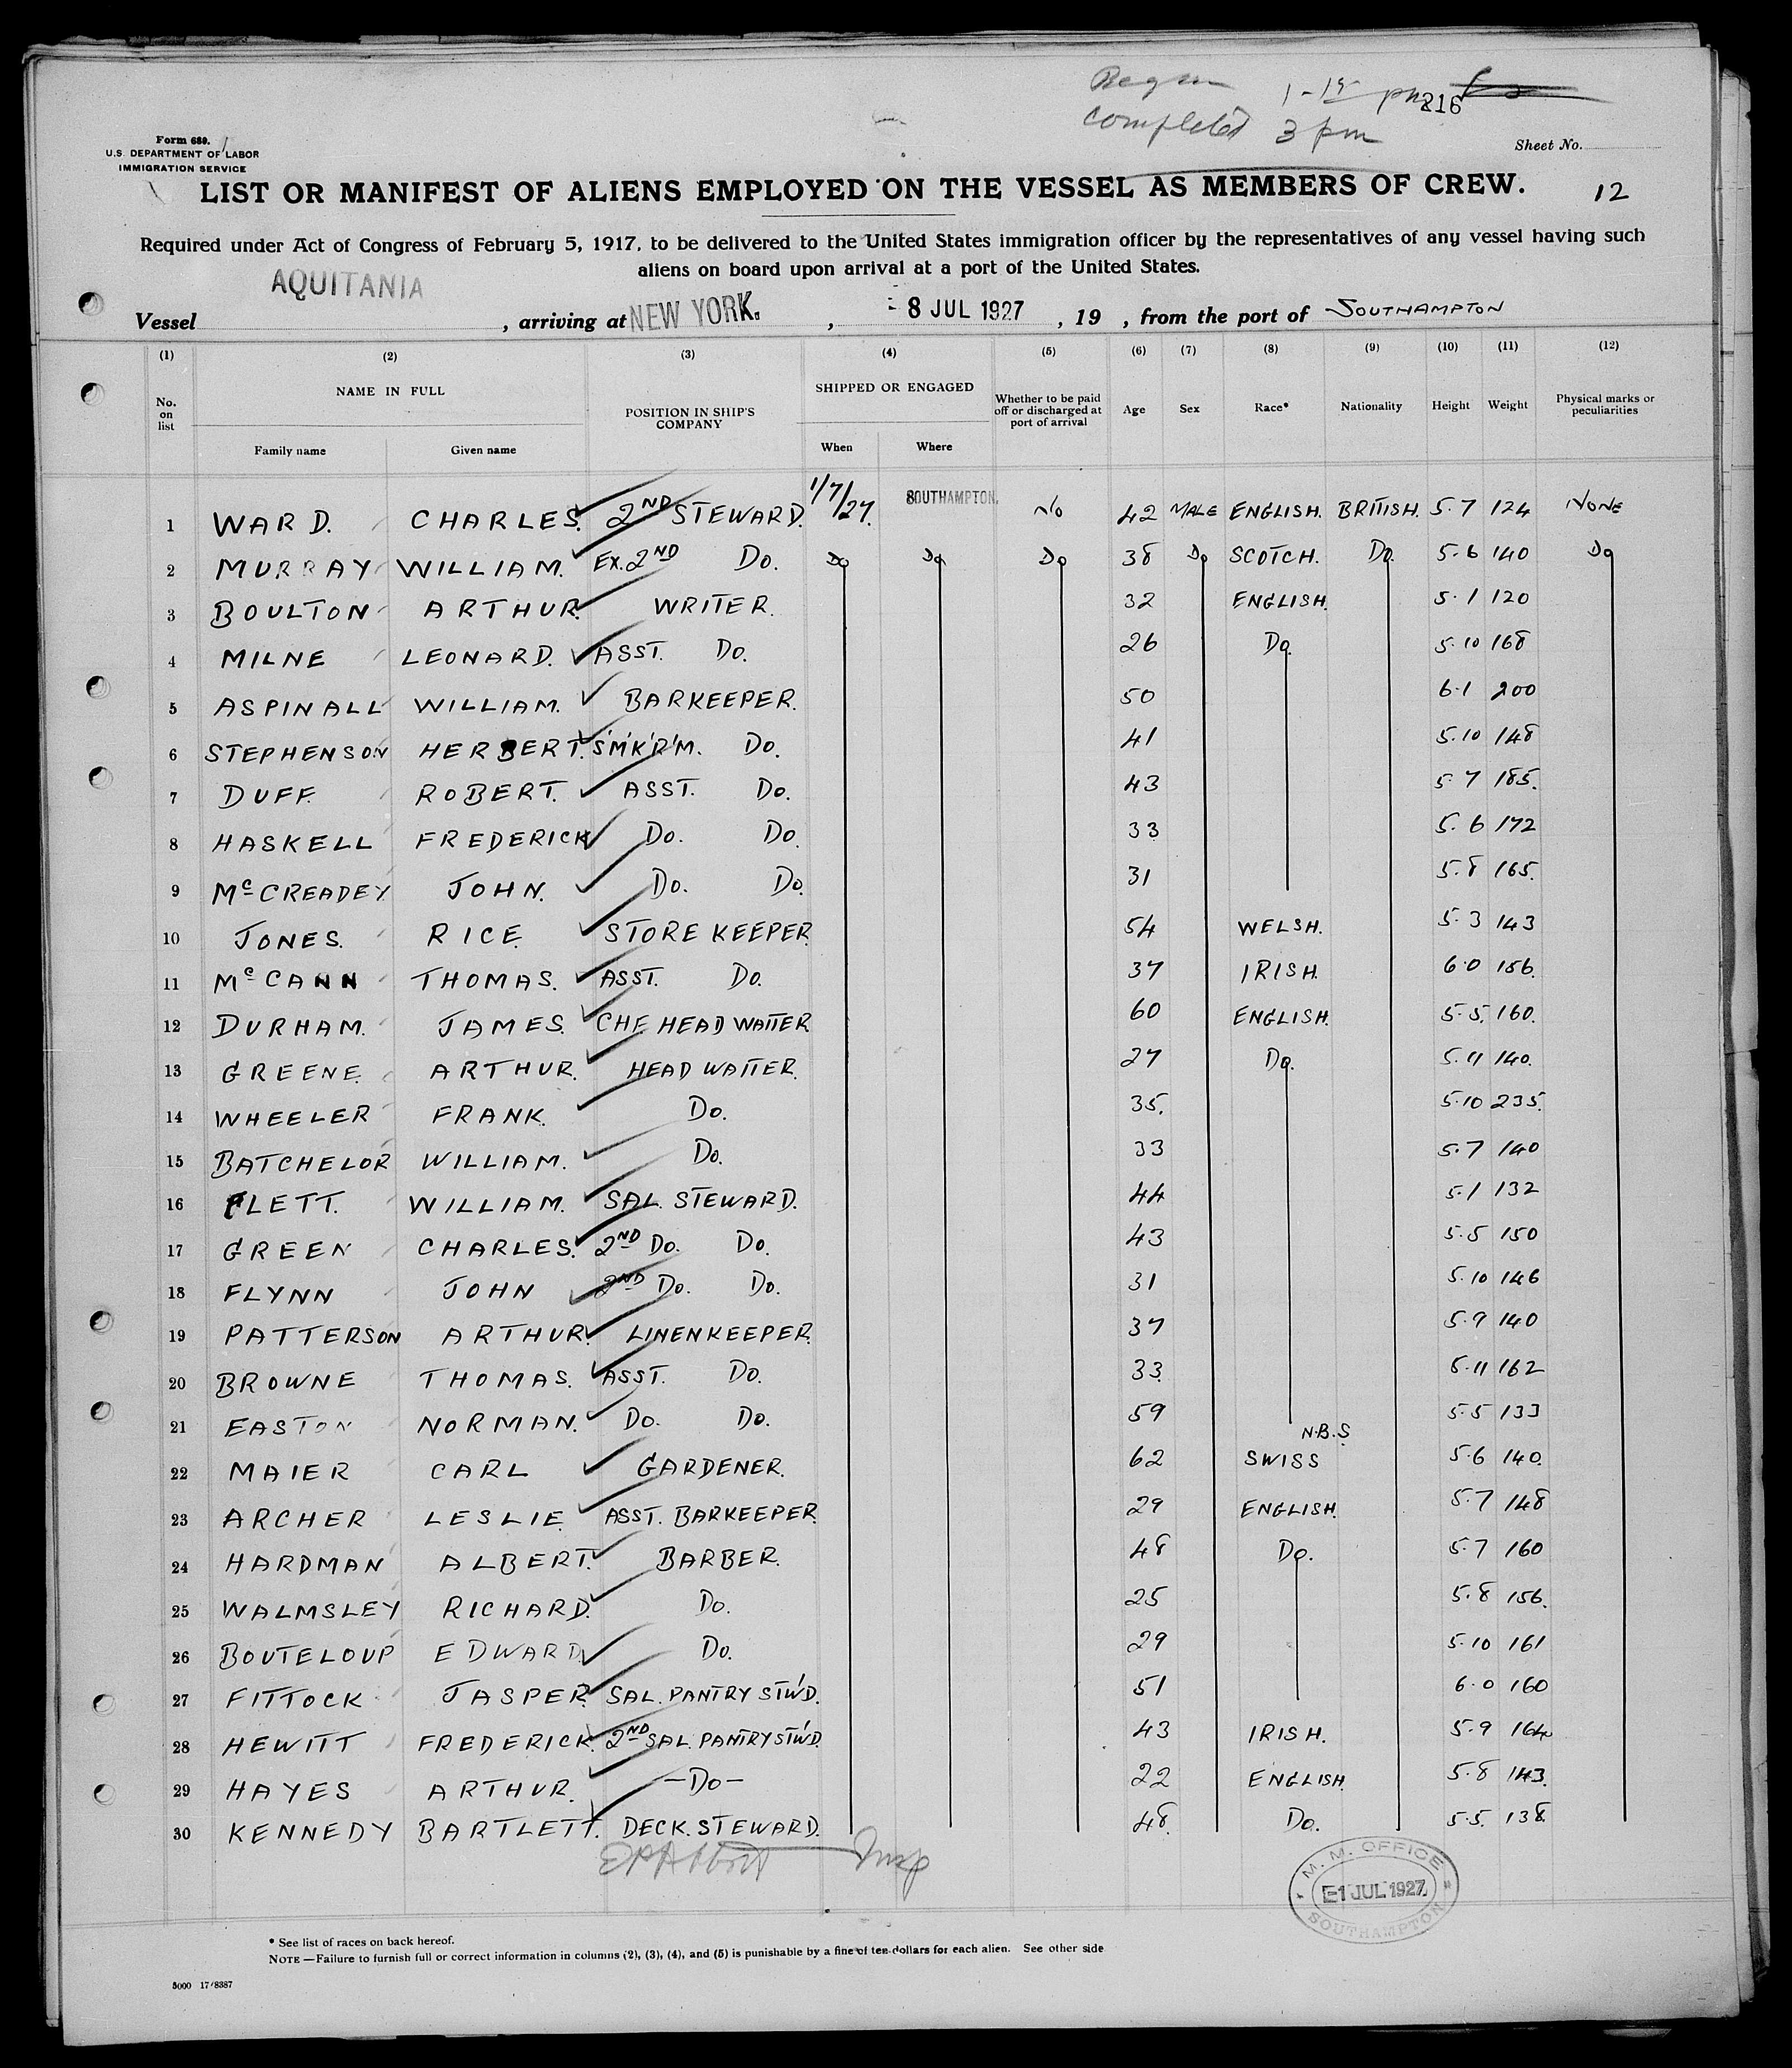 Begun 1-15 pm 216
Completed 3 pm
Form 680.
U.S. DEPARTMENT OF LABOR
IMMIGRATION SERVICE
Sheet No.
LIST OR MANIFEST OF ALIENS EMPLOYED ON THE VESSEL AS MEMBERS OF CREW. 12
Required under Act of Congress of February 5, 1917, to be delivered to the United States immigration officer by the representatives of any vessel having such
aliens on board upon arrival at a port of the United States.
Vessel AQUITANIA, arriving at NEW YORK., - 8 JUL 1927, 19 , from the port of SOUTHAMPTON
(1) (2) (3) (4) (5) (6) (7) (8) (9) (10) (11) (12)
No. on list NAME IN FULL POSITION IN SHIP'S COMPANY SHIPPED OR ENGAGED Whether to be paid off or discharged at port of arrival Age Sex Race* Nationality Height Weight Physical marks or peculiarities
Family name Given name When Where
1 WARD. CHARLES. 2ND STEWARD. 1/7/27. SOUTHAMPTON. No 42 MALE ENGLISH. BRITISH. 5.7 124 NONE
2 MURRAY WILLIAM. EX. 2ND Do. Do Do Do 38 Do SCOTCH. Do. 5.6 140 Do
3 BOULTON ARTHUR. WRITER. 32 ENGLISH. 5.1 120
4 MILNE LEONARD. ASST. Do. 26 Do. 5.10 168
5 ASPINALL WILLIAM. BARKEEPER. 50 6.1 200
6 STEPHENSON HERBERT. S'M'K'R'M. Do. 41 5.10 148
7 DUFF. ROBERT. ASST. Do. 43 5.7 185.
8 HASKELL FREDERICK Do. Do. 33 5.6 172
9 McCREADEY JOHN. Do. Do. 31 5.8 165.
10 JONES. RICE. STORE KEEPER. 54 WELSH. 5.3 143
11 McCANN THOMAS. ASST. Do. 37 IRISH. 6.0 156.
12 DURHAM. JAMES. CHF HEAD WAITER 60 ENGLISH. 5.5. 160.
13 GREENE. ARTHUR. HEAD WAITER. 27 Do. 5.11 140.
14 WHEELER FRANK. Do. 35. 5.10 235.
15 BATCHELOR WILLIAM. Do. 33 5.7 140
16 FLETT. WILLIAM. SAL. STEWARD. 44 5.1 132
17 GREEN CHARLES. 2ND Do. Do. 43 5.5 150
18 FLYNN JOHN 2ND Do. Do. 31 5.10 146
19 PATTERSON ARTHUR. LINENKEEPER. 37 5.9 140
20 BROWNE THOMAS. ASST. Do. 33. 5.11 162
21 EASTON NORMAN. Do. Do. 59 5.5 133
N.B.S.
22 MAIER CARL GARDENER. 62 SWISS 5.6 140.
23 ARCHER LESLIE. ASST. BARKEEPER. 29 ENGLISH. 5.7 148
24 HARDMAN ALBERT. BARBER. 48 Do. 5.7 160
25 WALMSLEY RICHARD. Do. 25 5.8 156.
26 BOUTELOUP EDWARD Do. 29 5.10 161
27 FITTOCK JASPER. SAL. PANTRY STW'D. 51 6.0 160
28 HEWITT FREDERICK. 2ND SAL. PANTRY STW'D. 43 IRISH. 5.9 164
29 HAYES ARTHUR. -Do- 22 ENGLISH. 5.8 143.
30 KENNEDY BARTLETT. DECK. STEWARD. 48. Do. 5.5. 138.
M. M. OFFICE
1 JUL 1927
SOUTHAMPTON
* See list of races on back hereof.
NOTE—Failure to furnish full or correct information in columns (2), (3), (4), and (5) is punishable by a fine of ten dollars for each alien. See other side
5000 17/8387